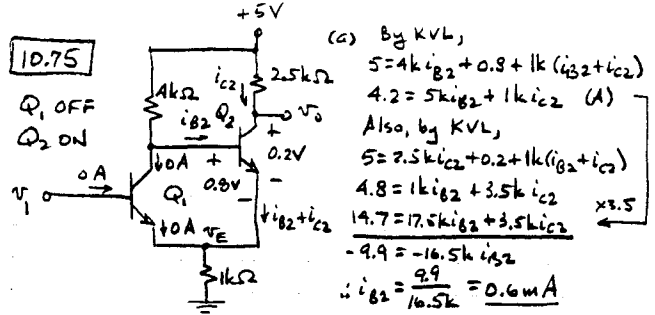 10.75
Q₁ OFF
Q₂ ON
+5V
4kΩ
iC2
2.5kΩ
Q₂
v₀
iB2
+
0.2V
-
0A
+
0.8V
-
0A
v₁
Q₁
0A
vE
iB2+iC2
1kΩ
(a) By KVL,
5=4k iB2+0.8+1k(iB2+iC2)
4.2=5kiB2+1kiC2 (A)
Also, by KVL,
5=2.5kiC2+0.2+1k(iB2+iC2)
4.8=1kiB2+3.5kiC2
x3.5
14.7=17.5kiB2+3.5kiC2
-9.9=-16.5k iB2
∴ iB2=9.9/16.5k=0.6mA